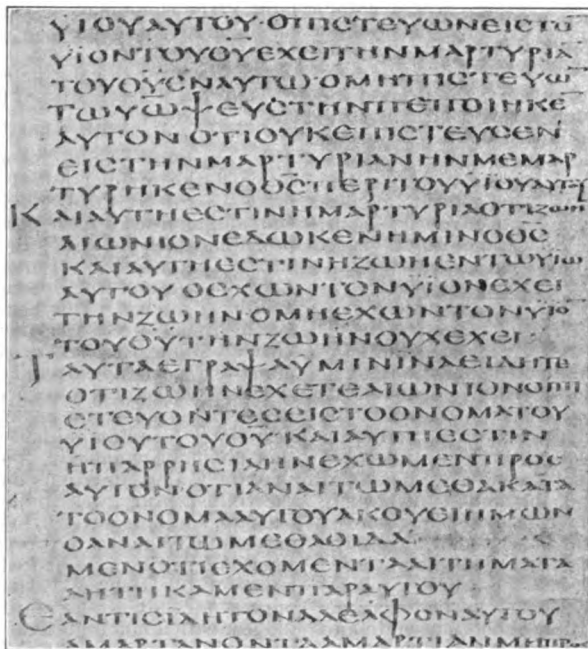 ΥΙΟΥΑΥΤΟΥ·ΟΠΙϹΤΕΥΩΝΕΙϹΤΟ̅
ΥΙΟΝΤΟΥΘ̅Υ̅ΕΧΕΙΤΗΝΜΑΡΤΥΡΙΑ̅
ΤΟΥΘ̅Υ̅ΕΝΑΥΤΩ·ΟΜΗΠΙϹΤΕΥΩ̅
ΤΩΥΩΨΕΥϹΤΗΝΠΕΠΟΙΗΚΕ
ΑΥΤΟΝΟΤΙΟΥΚΕΠΙϹΤΕΥϹΕΝ
ΕΙϹΤΗΝΜΑΡΤΥΡΙΑΝΗΝΜΕΜΑΡ
ΤΥΡΗΚΕΝΟΘ̅Ϲ̅ΠΕΡΙΤΟΥΥΙΟΥΑΥΤΟΥ
ΚΑΙΑΥΤΗΕϹΤΙΝΗΜΑΡΤΥΡΙΑΟΤΙΖΩΗ
ΑΙΩΝΙΟΝΕΔΩΚΕΝΗΜΙΝΟΘ̅Ϲ̅
ΚΑΙΑΥΤΗΕϹΤΙΝΗΖΩΗΕΝΤΩΥΙΩ
ΑΥΤΟΥ·ΟΕΧΩΝΤΟΝΥΙΟΝΕΧΕΙ
ΤΗΝΖΩΗΝ·ΟΜΗΕΧΩΝΤΟΝΥΙΟ̅
ΤΟΥΘ̅Υ̅ΤΗΝΖΩΗΝΟΥΧΕΧΕΙ·
ΤΑΥΤΑΕΓΡΑΨΑΥΜΙΝΙΝΑΕΙΔΗΤΕ
ΟΤΙΖΩΗΝΕΧΕΤΕΑΙΩΝΙΟΝΟΙΠΙ
ϹΤΕΥΟΝΤΕϹΕΙϹΤΟΟΝΟΜΑΤΟΥ
ΥΙΟΥΤΟΥΘ̅Υ̅·ΚΑΙΑΥΤΗΕϹΤΙΝ
ΗΠΑΡΡΗϹΙΑΗΝΕΧΩΜΕΝΠΡΟϹ
ΑΥΤΟΝΟΤΙΑΝΑΙΤΩΜΕΘΑΚΑΤΑ
ΤΟΟΝΟΜΑΑΥΤΟΥΑΚΟΥΕΙΗΜΩΝ
ΟΑΝΑΙΤΩΜΕΘΑΟΙΔΑ
ΜΕΝΟΤΙΕΧΟΜΕΝΤΑΑΙΤΗΜΑΤΑ
ΑΗΤΗΚΑΜΕΝΠΑΡΑΥΤΟΥ·
ΕΑΝΤΙϹΙΔΗΤΟΝΑΔΕΛΦΟΝΑΥΤΟΥ
ΑΜΑΡΤΑΝΟΝΤΑΑΜΑΡΤΙΑΝΜΗΠΡΟϹ